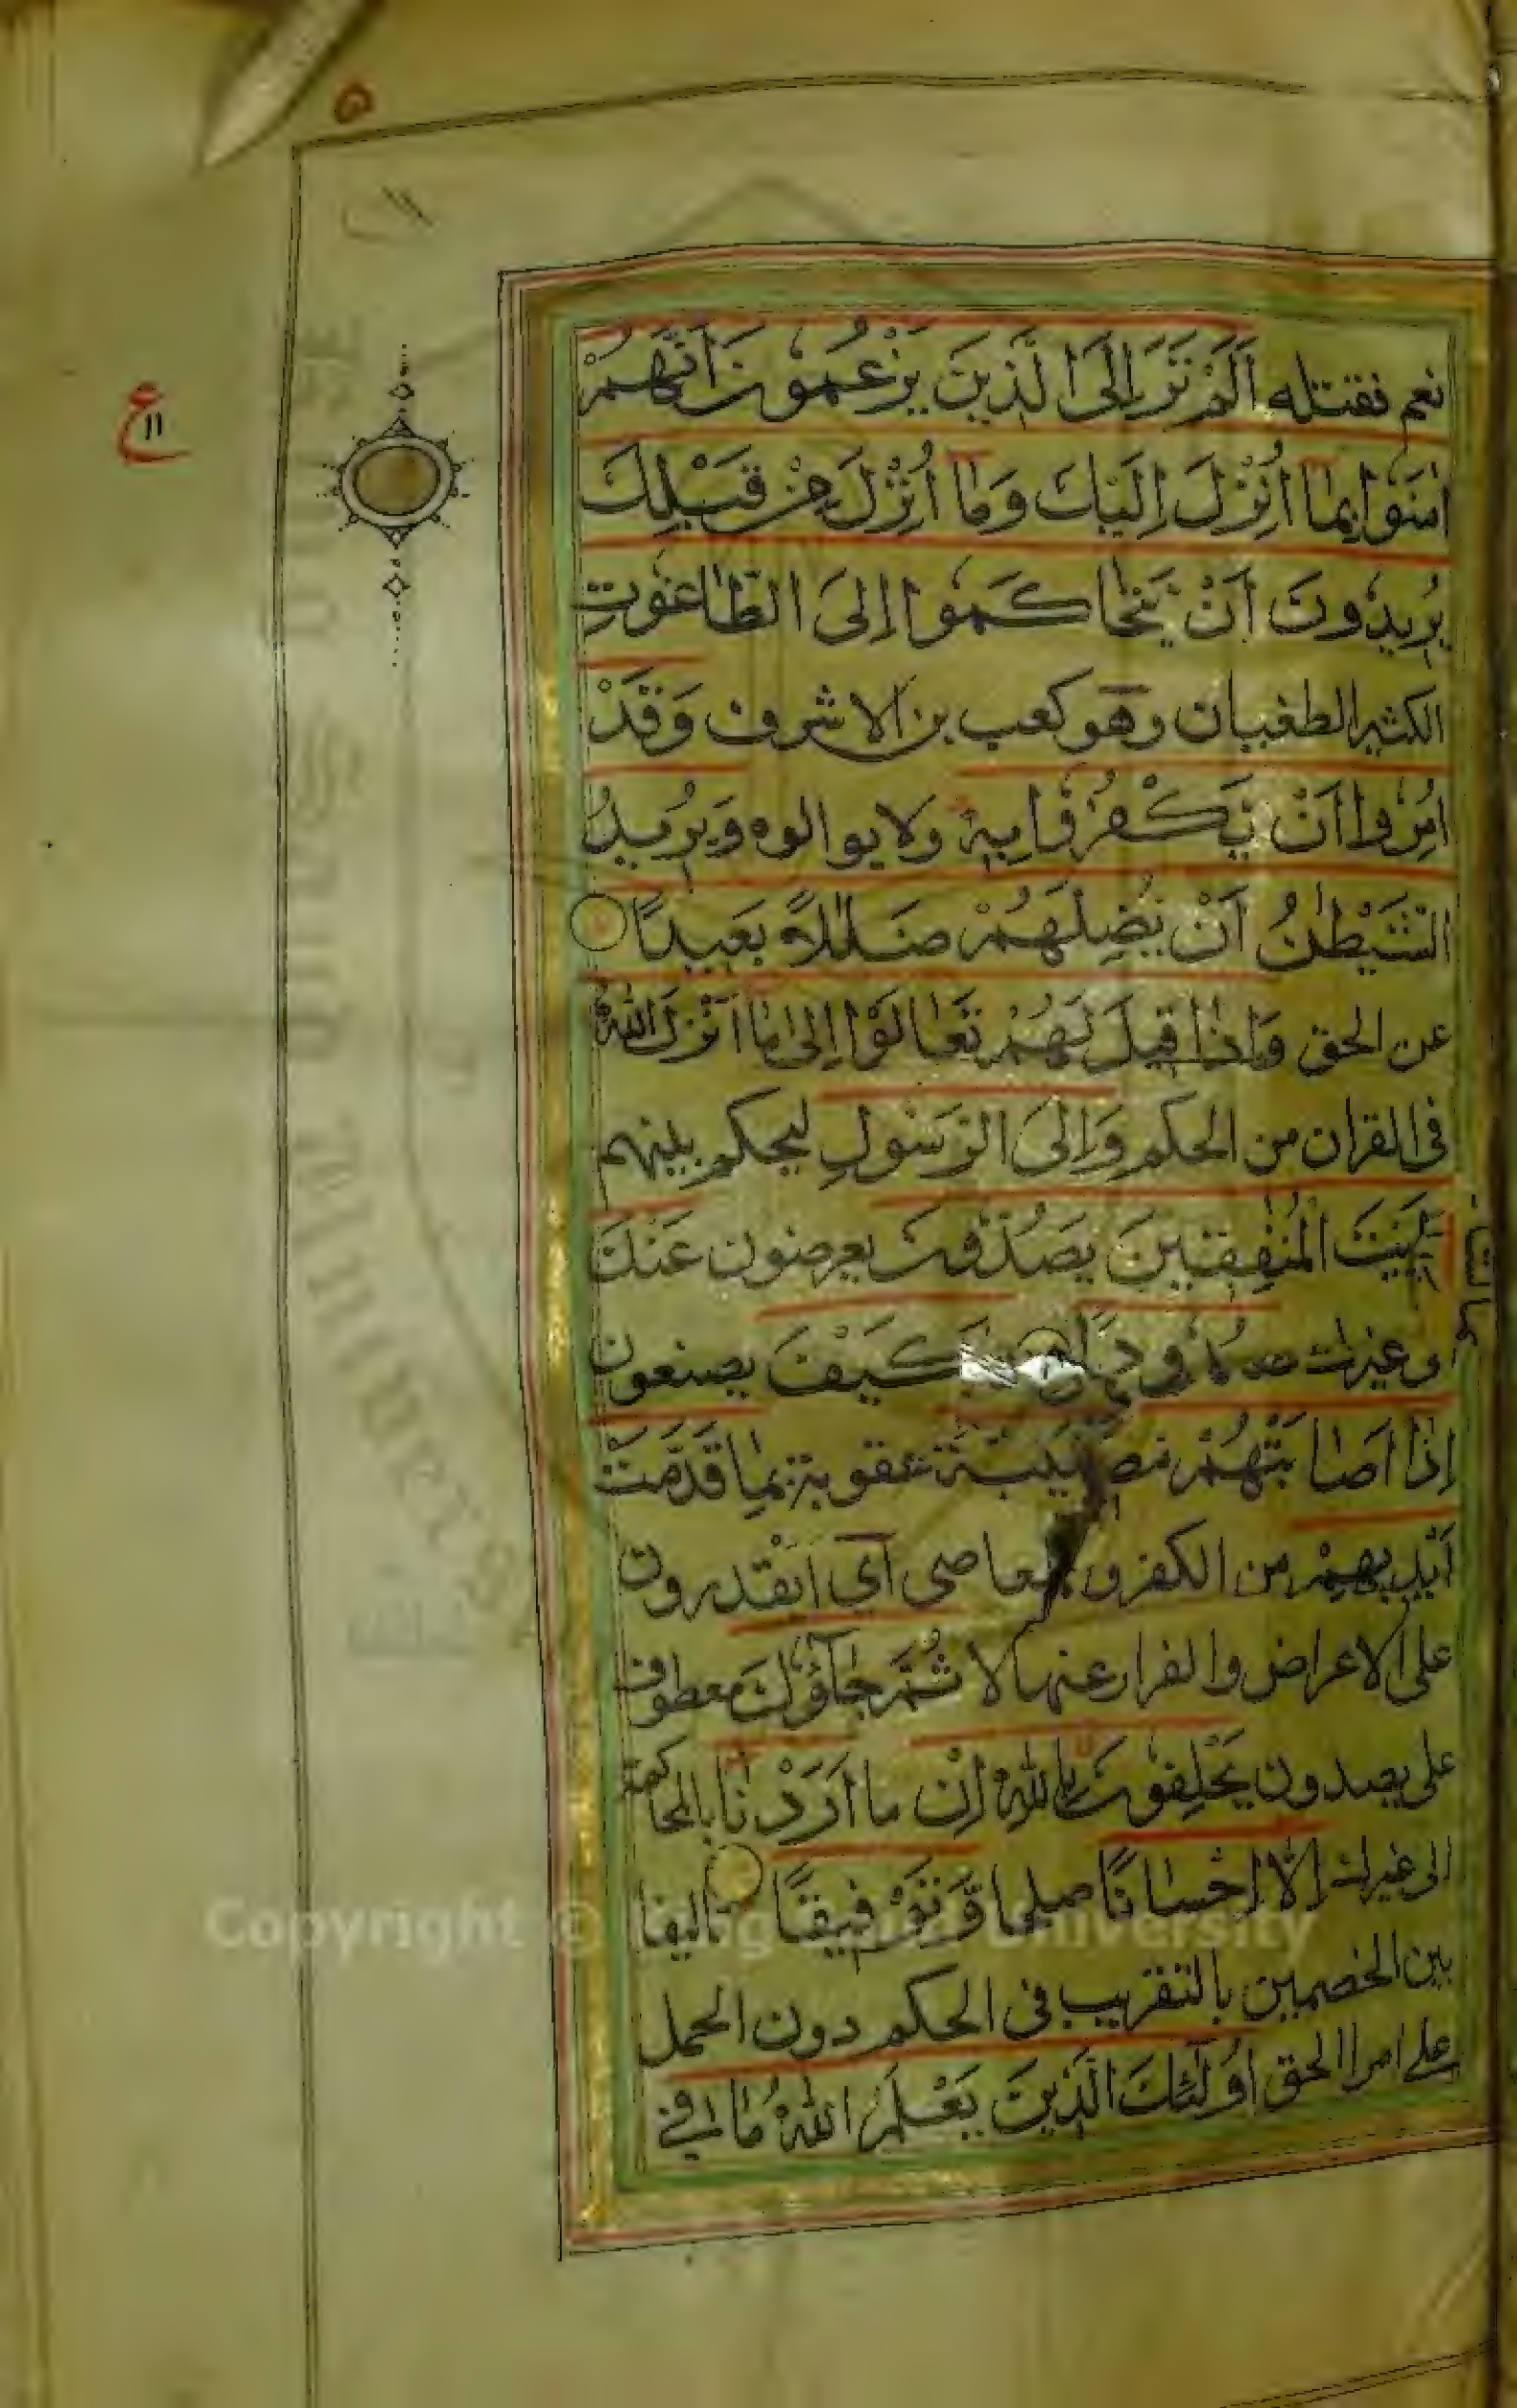 نعم فقتله اَلَمْ تَرَ اِلَى الَّذِينَ يَزْعُمُونَ اَنَّهُمْ
اٰمَنُوا بِمَا اُنْزِلَ اِلَيْكَ وَمَا اُنْزِلَ مِنْ قَبْلِكَ
يُرِيدُونَ اَنْ يَتَحَاكَمُوا اِلَى الطَّاغُوتِ
الكثير الطغيان وهو كعب بن الاشرف وَقَدْ
اُمِرُوا اَنْ يَكْفُرُوا بِهِ ولا يوالوه وَيُرِيدُ
الشَّيْطٰنُ اَنْ يُضِلَّهُمْ ضَلٰلاً بَعِيدًا
عن الحق وَاِذَا قِيلَ لَهُمْ تَعَالَوْا اِلٰى مَا اَنْزَلَ اللّٰهُ
فى القران من الحكم وَاِلَى الرَّسُولِ ليحكم بينهم
رَاَيْتَ الْمُنٰفِقِينَ يَصُدُّونَ يعرضون عَنْكَ
غيرك صدودا فَكَيْفَ يصنعون
اِذَا اَصَابَتْهُمْ مُصِيبَةٌ عقوبة بِمَا قَدَّمَتْ
اَيْدِيهِمْ من الكفر والمعاصى اى ايقدرون
على الاعراض والفرار عنها لا ثُمَّ جَاؤُكَ معطوف
على يصدون يَحْلِفُونَ بِاللّٰهِ اِنْ ما اَرَدْنَا بالمحاكمة
الى غيرك اِلَّا اِحْسَانًا صلحا وَتَوْفِيقًا تاليفا
بين الخصمين بالتقريب فى الحكم دون الحمل
على امر الحق اُولٰئِكَ الَّذِينَ يَعْلَمُ اللّٰهُ مَا فِي
ع
١١
Copyright © King Saud University